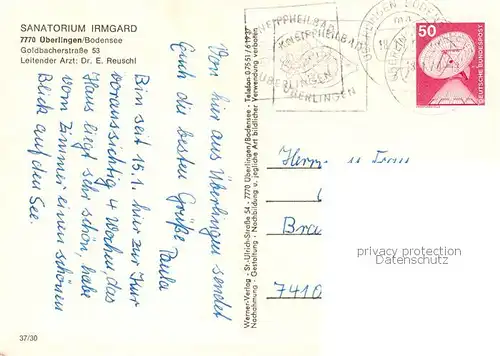 SANATORIUM IRMGARD
7770 Überlingen/Bodensee
Goldbacherstraße 53
Leitender Arzt: Dr. E. Reuschl
Von hier aus Überlingen sendet
Euch die besten Grüße Paula
Bin seit 15.1. hier zur Kur
voraussichtig 4 Wochen, das
Haus liegt sehr schön, habe
vom Zimmer einen schönen
Blick auf den See.
37/30
Werner-Verlag - St.-Ulrich-Straße 54 - 7770 Überlingen/Bodensee - Tel. 0 75 51/6 19 37
Nachahmung - Gestaltung - Nachbildung u. jegliche Art bildlicher Verwendung verboten
KNEIPPHEILBAD
ÜBERLINGEN
KNEIPPHEILBAD
ÜBERLINGEN
50
DEUTSCHE BUNDESPOST
Herrn u. Frau
Bra
7410
privacy protection
watermark